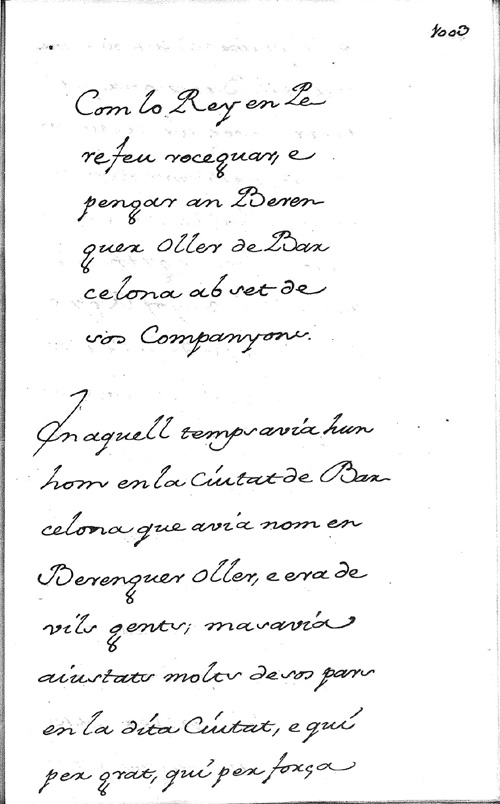 1003
Com lo Rey en Pe
re feu roceguar, e
pengar an Beren
guer Oller de Bar
celona ab set de
sos Companyons.
En aquell temps avia hun
hom en la Ciutat de Bar
celona que avia nom en
Berenguer Oller, e era de
vils gents; mas avia
aiustats molts de sos pars
en la dita Ciutat, e qui
per grat, qui per força